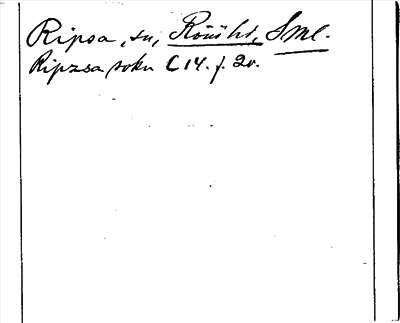 Ripsa, sn, Rönö hd, Sml.
Ripzsa sokn C 14. f. 20.